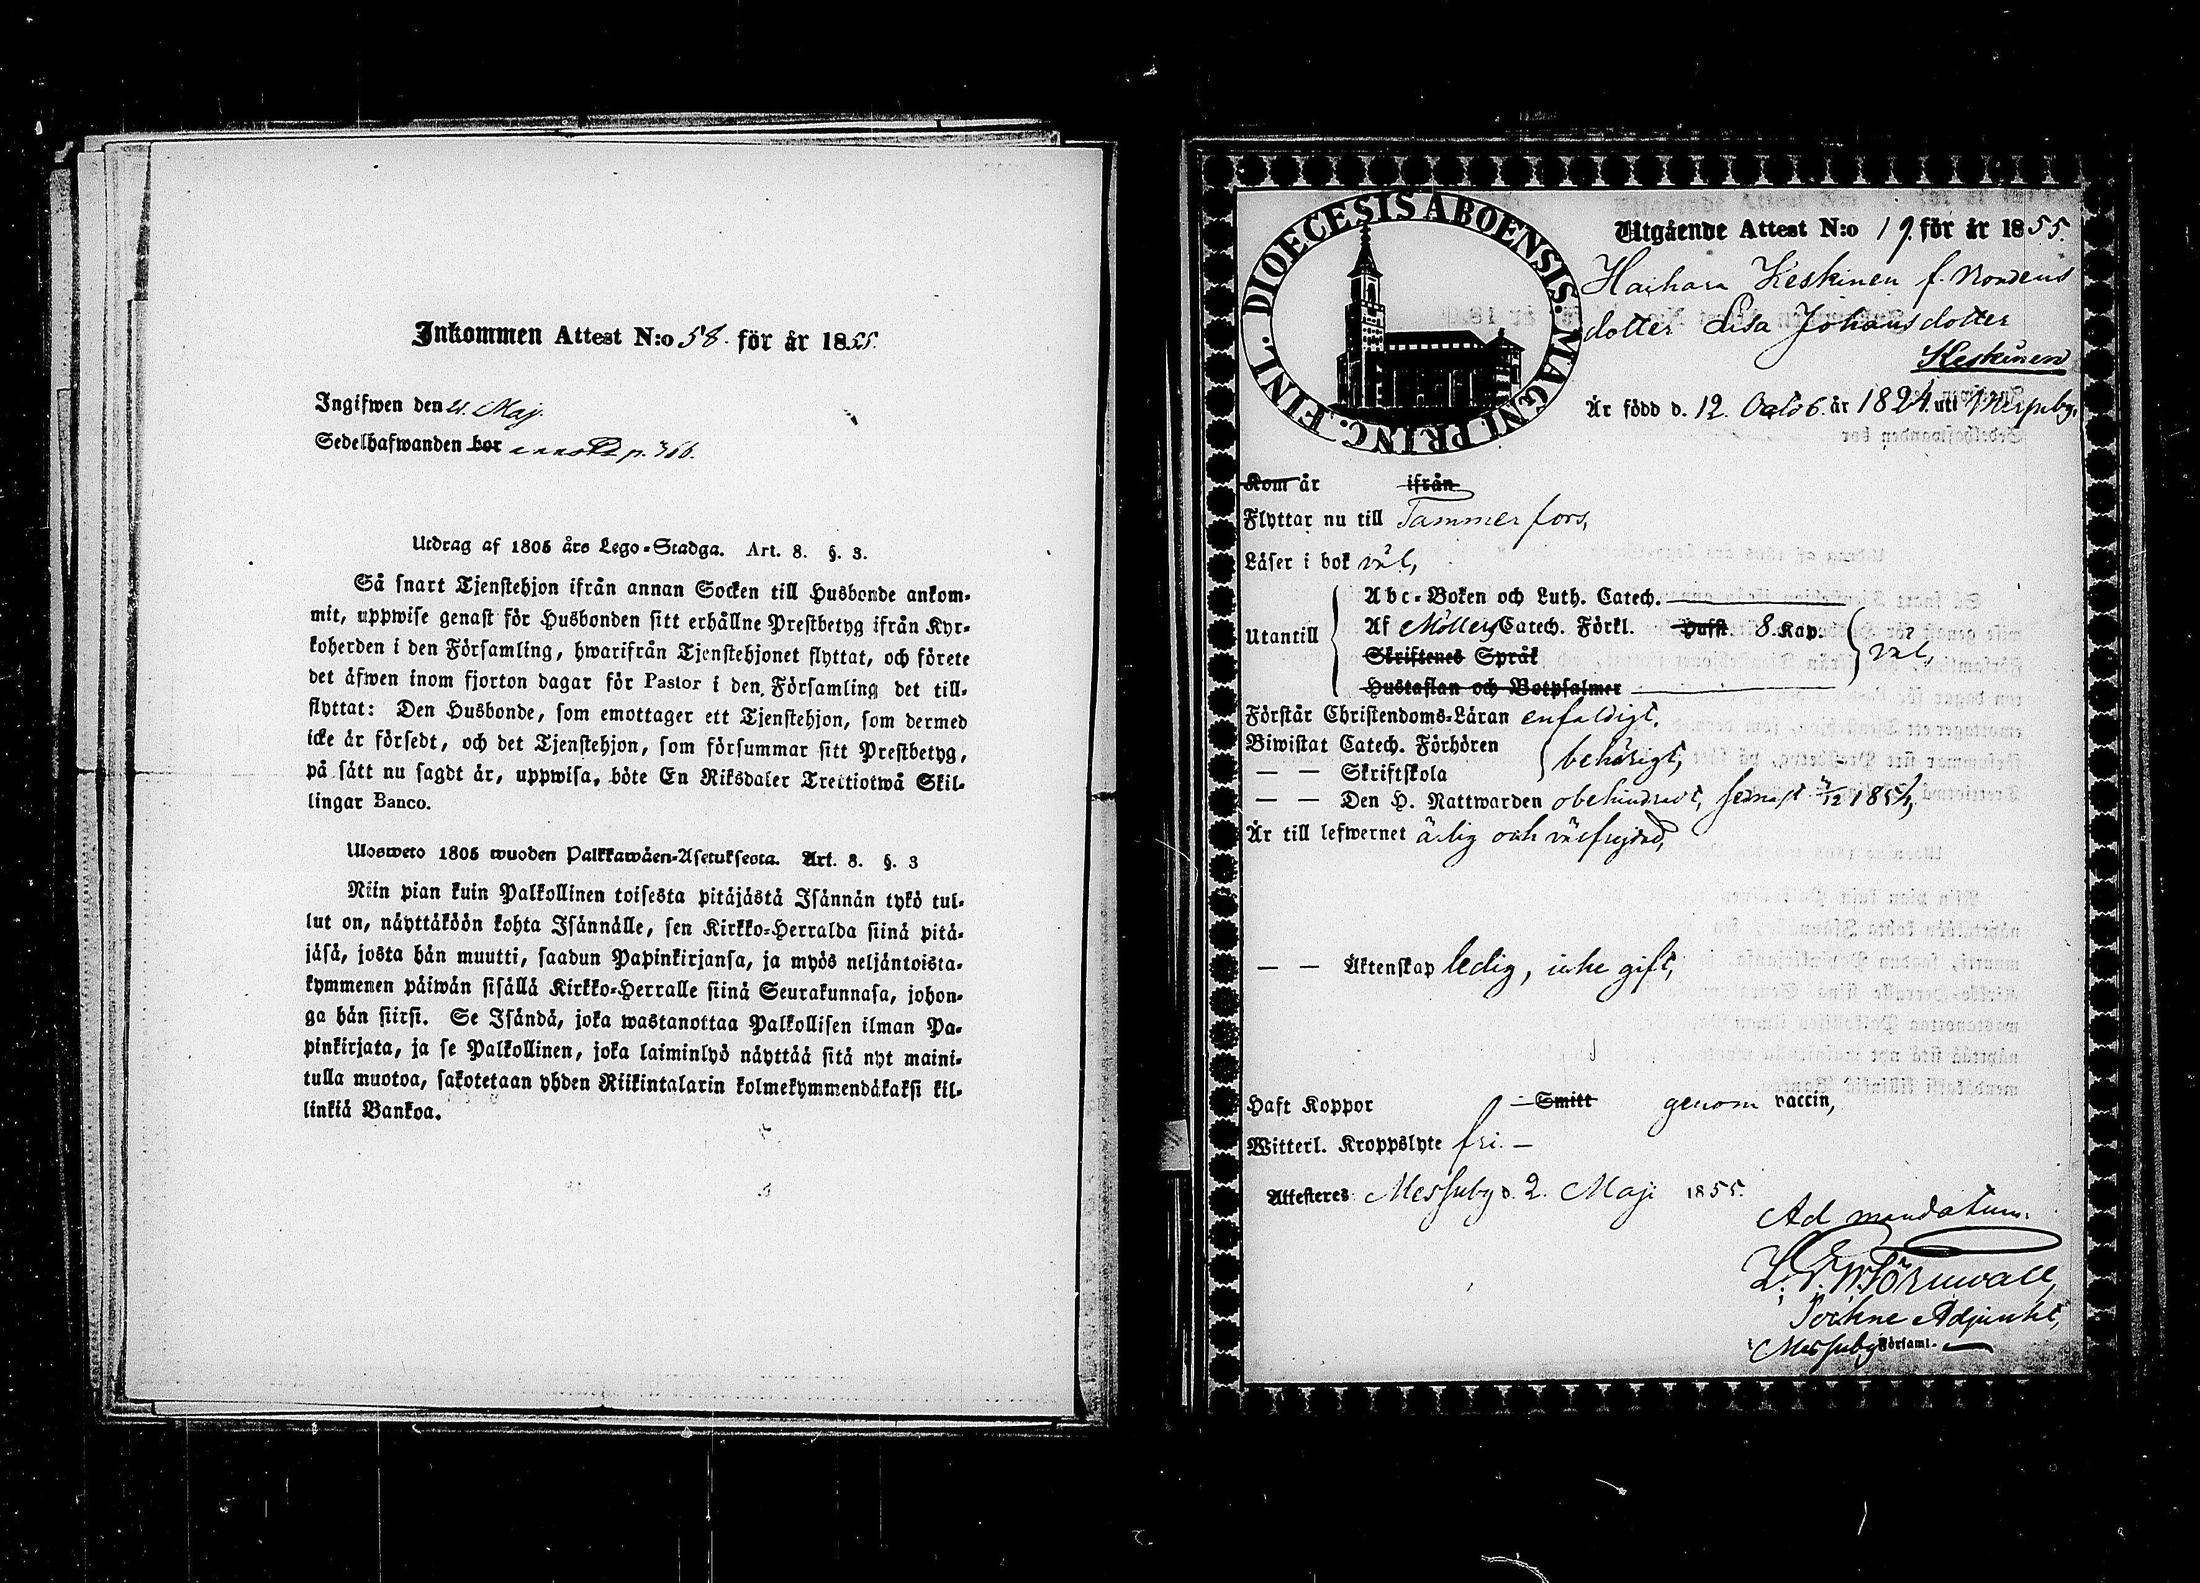 Inkommen Attest N:o 58. för år 1855.
Ingifwen den 21. Maj.
Sedelhafwanden bor p. 366.
Utdrag af 1805 års Lego-Stadga. Art. 8. §. 3.
Så snart Tjenstehjon ifrån annan Socken till Husbonde ankom-
mit, uppwise genast för Husbonden sitt erhållne Prestbetyg ifrån Kyr-
koherden i den Församling, hwarifrån Tjenstehjonet flyttat, och förete
det äfwen inom fjorton dagar för Pastor i den Församling det till-
flyttat: Den Husbonde, som emottager ett Tjenstehjon, som dermed
icke är försedt, och det Tjenstehjon, som försummar sitt Prestbetyg,
på sätt nu sagdt är, uppwisa, böte En Riksdaler Trettiotwå Skil-
lingar Banco.
Ulosweto 1805 wuoden Palkkawäen-Asetuksesta. Art. 8. §. 3
Niin pian kuin Palkollinen toisesta pitäjästä Isännän tykö tul-
lut on, näyttäköön kohta Isännälle, sen Kirkko-Herralda siinä pitä-
jäsä, josta hän muutti, saadun Papinkirjansa, ja myös neljäntoista-
kymmenen päiwän sisällä Kirkko-Herralle siinä Seurakunnasa, johon-
ga hän siirsi. Se Isändä, joka wastanottaa Palkollisen ilman Pa-
pinkirjata, ja se Palkollinen, joka laiminlyö näyttää sitä nyt maini-
tulla muotoa, sakotetaan yhden Riikintalarin kolmekymmendäkaksi kil-
linkiä Bankoa.
DIOECESIS ABOENSIS. MAGNI PRINC. FINL.
Utgående Attest N:o 19. för år 1855.
Haihara Keskinen f. Bondens
dotter Lisa Johansdotter
Keskinen
Är född d. 12. Octob. år 1824. uti Messuby,
Kom år ifrån
Flyttar nu till Tammerfors,
Läser i bok väl,
Utantill
Abc-Boken och Luth. Catech.
Af Möllers Catech. Förkl. Hufst. 8. Kap.
Skriftenes Språk
väl,
Hustaflan och Botpsalmer
Förstår Christendoms-Läran enfaldigt.
Biwistat Catech. Förhören
— — Skriftskola
behörigt,
— — Den H. Nattwarden obehindradt, sednast 3/12 1854,
Är till lefwernet ärlig och välfrejdad,
— — Äktenskap ledig, icke gift,
Haft Koppor Smitt genom vaccin,
Witterl. Kroppslyte fri. —
Attesteres Messuby d. 2. Maji 1855.
Ad mandatum.
L. E. W. Törnwall,
Sockne Adjunkt,
i Messuby Församl.